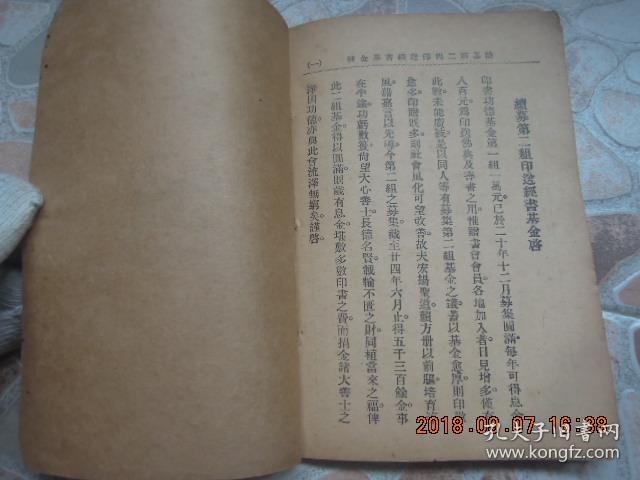 續募第二組印送經書基金啓
印書功德基金第一組一萬元已於二十年十二月募集圓滿。每年可得息金
八百元爲印送佛典及善書之用惟贈書會會員各地加入者日見增多僅有
此數未能廣被是以同人等有募集第二組基金之議蓋以基金愈厚則印數
愈多印贈既多則社會風化可望改善故夫宏揚聖道。輯方册以前驅培育
風藉嘉言以先導今第二組之募集截至廿四年六月止得五千三百餘金事
在半途功虧數簣尚望大心善士長德名賢戡輸不匱之財同植當來之福俾
此二組基金得以圓滿則歲有息金堪敷多數印書之費而捐金諸大善士之
淨因功德亦與此會流澤無窮矣謹啓。
(一)
2018.09.07 16:38
孔夫子旧书网
www.kongfz.com